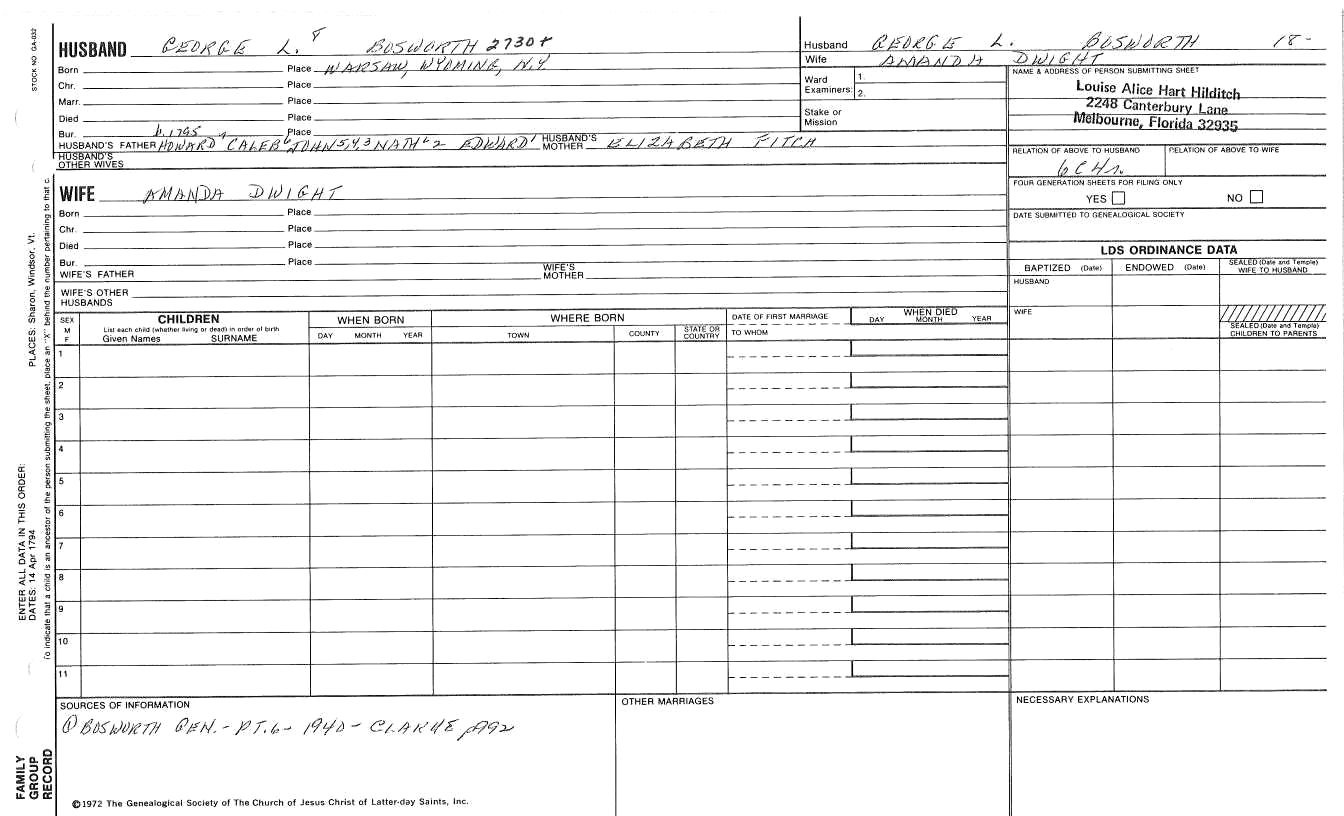 STOCK NO. GA-032
HUSBAND GEORGE L. 8 BOSWORTH 2730+
Born Place WARSAW, WYOMING, N.Y
Chr. Place
Marr. Place
Died Place
Bur. b. 1795 Place
HUSBAND'S FATHER HOWARD 7 CALEB 6 JOHN 5,4,3 NATH L 2 EDWARD 1 HUSBAND'S MOTHER ELIZABETH FITCH
HUSBAND'S OTHER WIVES
WIFE AMANDA DWIGHT
Born Place
Chr. Place
Died Place
Bur. Place
WIFE'S FATHER WIFE'S MOTHER
WIFE'S OTHER HUSBANDS
Husband GEORGE L. BOSWORTH 18-
Wife AMANDA DWIGHT
Ward Examiners: 1. 2.
Stake or Mission
NAME & ADDRESS OF PERSON SUBMITTING SHEET
Louise Alice Hart Hilditch
2248 Canterbury Lane
Melbourne, Florida 32935
RELATION OF ABOVE TO HUSBAND RELATION OF ABOVE TO WIFE
6C4r.
FOUR GENERATION SHEETS FOR FILING ONLY
YES NO
DATE SUBMITTED TO GENEALOGICAL SOCIETY
LDS ORDINANCE DATA
BAPTIZED (Date) ENDOWED (Date) SEALED (Date and Temple) WIFE TO HUSBAND
HUSBAND
WIFE
SEALED (Date and Temple) CHILDREN TO PARENTS
SEX M F
CHILDREN
List each child (whether living or dead) in order of birth
Given Names SURNAME
WHEN BORN
DAY MONTH YEAR
WHERE BORN
TOWN COUNTY STATE OR COUNTRY
DATE OF FIRST MARRIAGE
TO WHOM
WHEN DIED
DAY MONTH YEAR
1
2
3
4
5
6
7
8
9
10
11
SOURCES OF INFORMATION
① BOSWORTH GEN. - PT. 6 - 1940 - CLARKE p992
OTHER MARRIAGES
NECESSARY EXPLANATIONS
©1972 The Genealogical Society of The Church of Jesus Christ of Latter-day Saints, Inc.
FAMILY GROUP RECORD
ENTER ALL DATA IN THIS ORDER:
DATES: 14 Apr 1794
PLACES: Sharon, Windsor, Vt.
To indicate that a child is an ancestor of the person submitting the sheet, place an "X" behind the number pertaining to that c